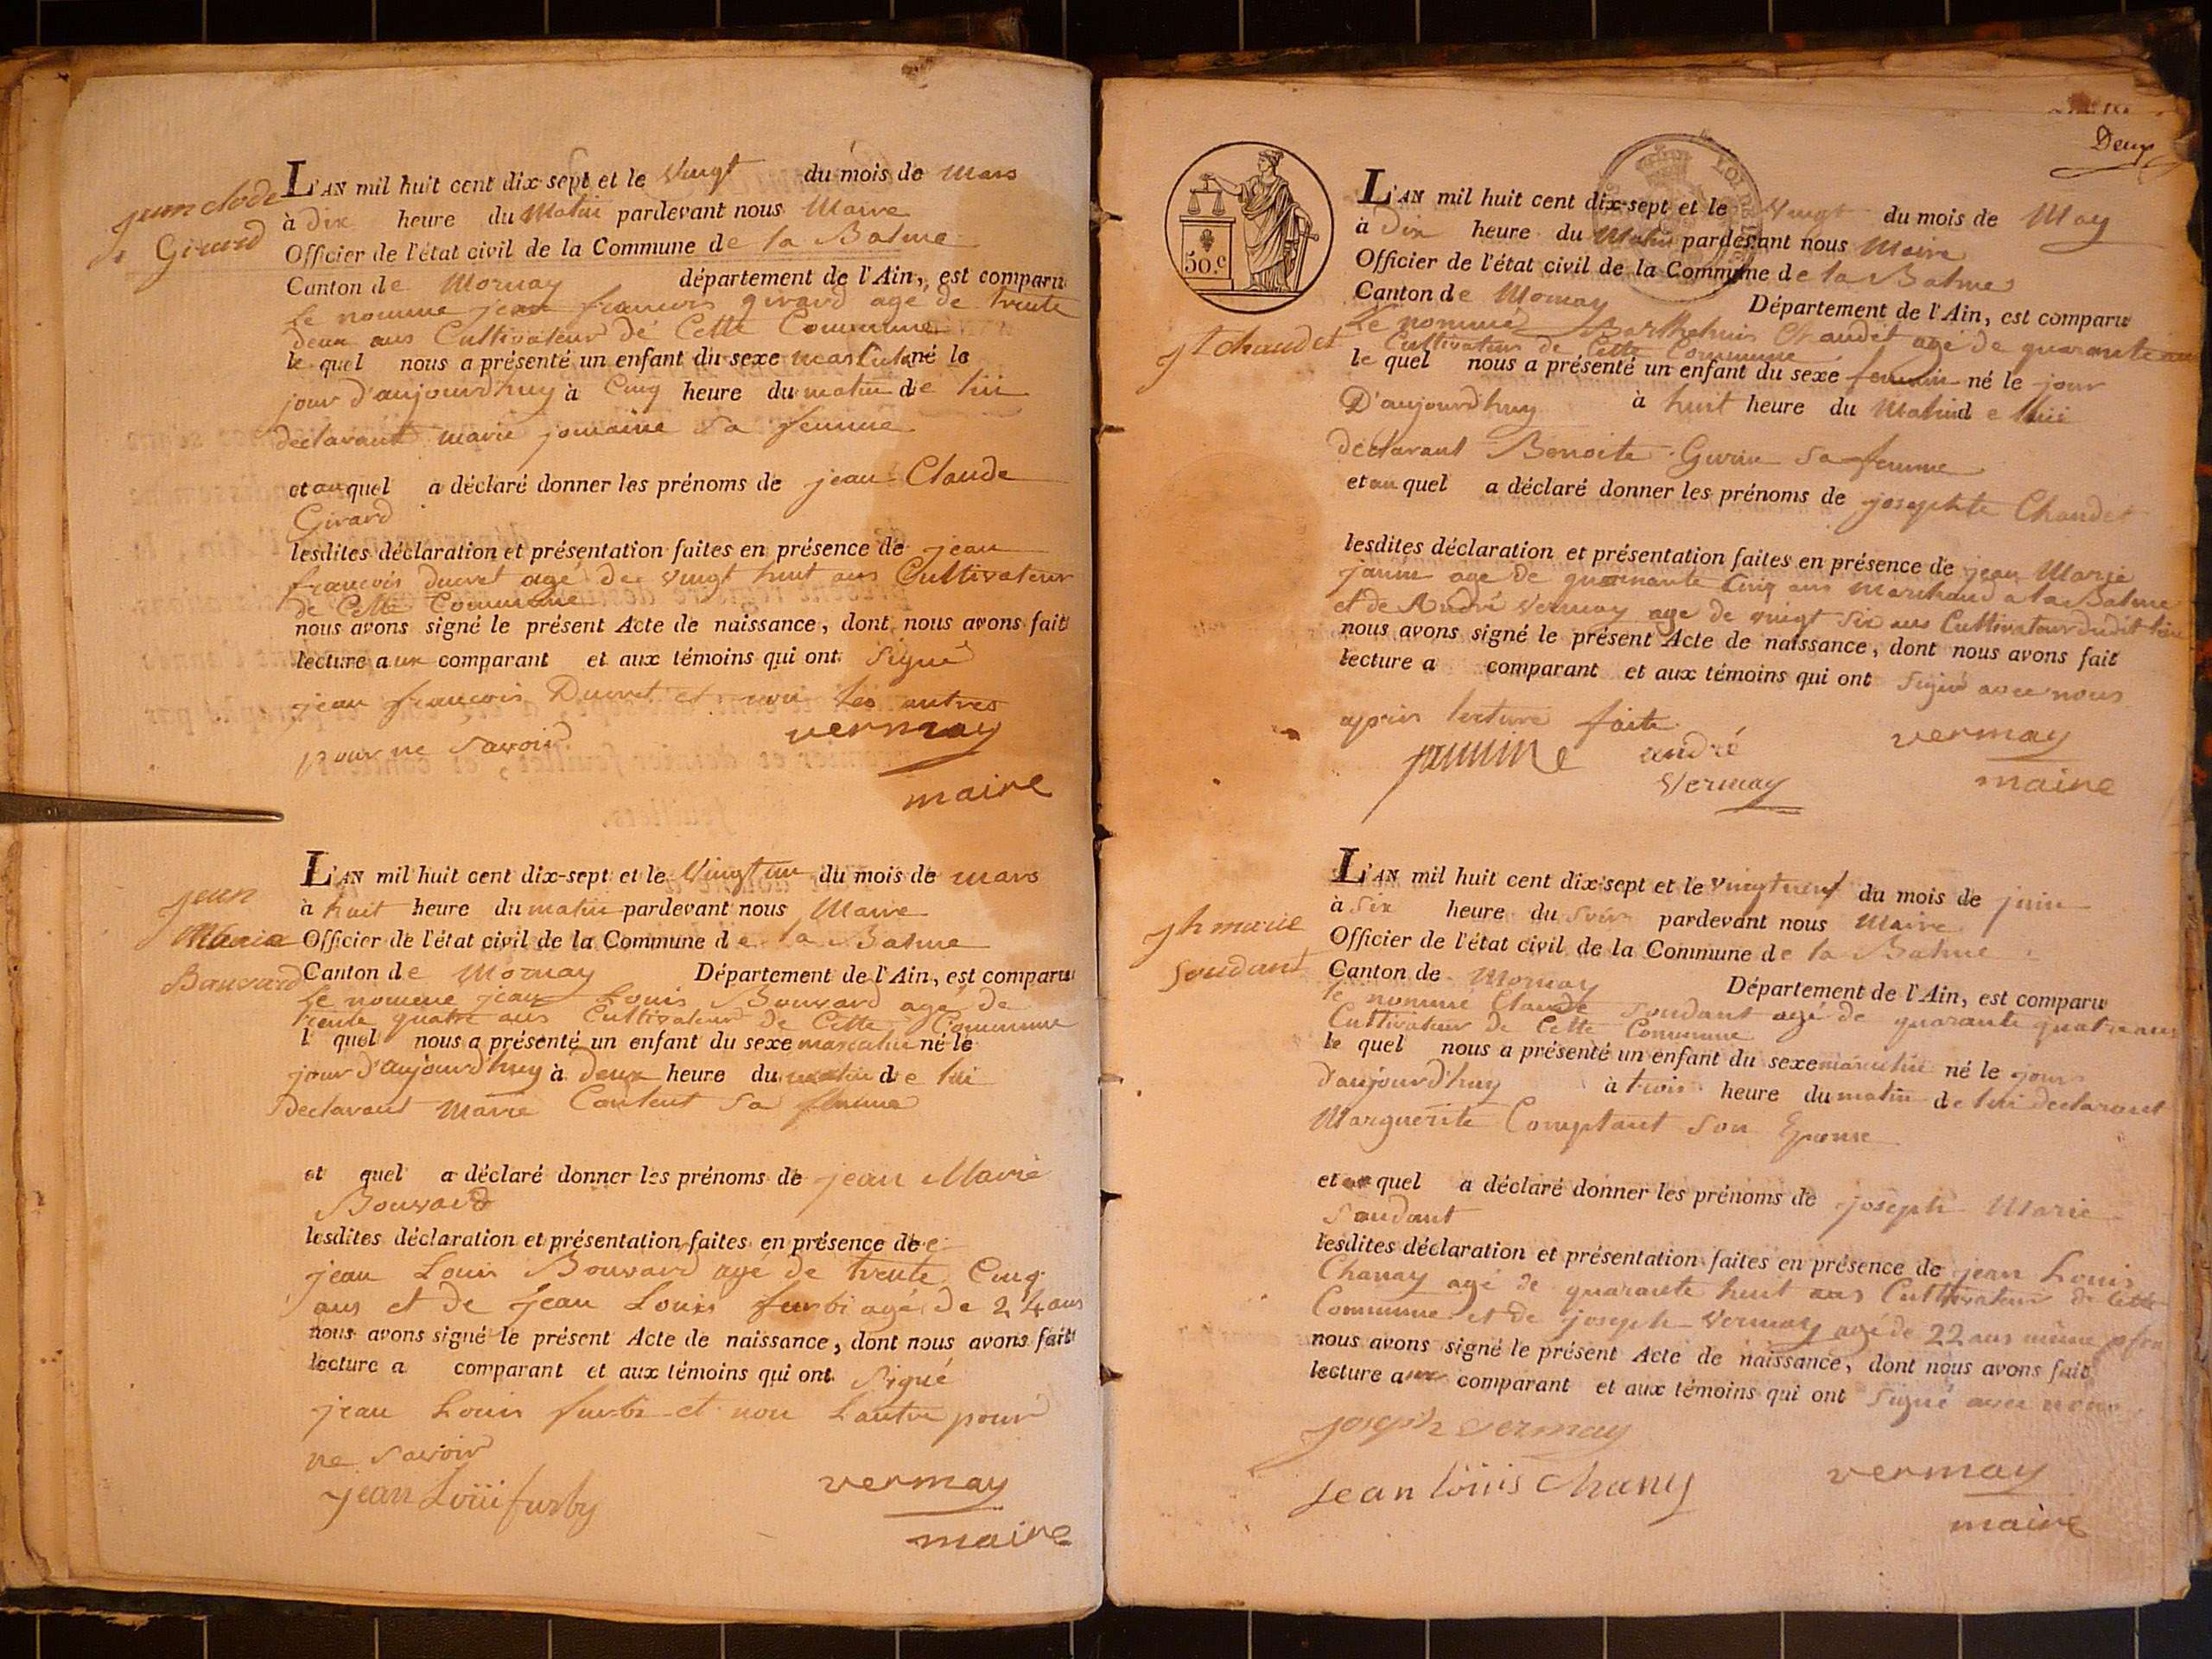 jean clode
Girard
L'AN mil huit cent dix-sept et le Vingt du mois de Mars
à Dix heure du Matin pardevant nous Maire
Officier de l'état civil de la Commune de la Balme
Canton de Mornay département de l'Ain, est comparu
le nomme jean francois girard age de trente
deux ans Cultivateur de Cette Commune
le quel nous a présenté un enfant du sexe mascculin né le
jour d'aujourd'huy à Cinq heure du matin de lui
declarant marie jomaine Sa femme
et au quel a déclaré donner les prénoms de jean Claude
Girard
lesdites déclaration et présentation faites en présence de jean
francois ducret agé de vingt huit ans Cultivateur
de Cette Commune
nous avons signé le présent Acte de naissance, dont nous avons fait
lecture aux comparant et aux témoins qui ont Signé
jean francois Ducret et non les autres
pour ne Savoir
vermay
maire
jean
Maria
Bauvard
L'AN mil huit cent dix-sept et le Vingt un du mois de mars
à huit heure du matin pardevant nous Maire
Officier de l'état civil de la Commune de la Balme
Canton de Mornay Département de l'Ain, est comparu
le nomme jean Louis Bouvard agé de
trente quatre ans Cultivateur de Cette Commune
l quel nous a présenté un enfant du sexe masculin né le
jour d'aujourd'huy à deux heure du matin de lui
declarant Marie Conteut Sa femme
et quel a déclaré donner les prénoms de jean Marie
Bouvard
lesdites déclaration et présentation faites en présence de
jean Louis Bouvard agé de trente Cinq
ans et de jean Louis furbi agé de 24 ans
nous avons signé le présent Acte de naissance, dont nous avons fait
lecture a comparant et aux témoins qui ont Signé
jean Louis furbi et non Lautre pour
ne Savoir
jean Loüi furby
vermay
maire
Deux
50.c
jt chaudet
L'AN mil huit cent dix-sept et le Vingt du mois de May
à Dix heure du Matin pardevant nous Maire
Officier de l'état civil de la Commune de la Balme
Canton de Mornay Département de l'Ain, est comparu
le nommé Barthelmis Chaudet agé de quarante ans
Cultivateur de Cette Commune
le quel nous a présenté un enfant du sexe feminin né le jour
D'aujourd'huy à huit heure du Matin de lui
declarant Benoite Gurin Sa femme
et au quel a déclaré donner les prénoms de josephte Chaudet
lesdites déclaration et présentation faites en présence de jean Marie
janin age de quarante Cinq ans Marchand a la Balme
et de André Vermay age de vingt Six ans Cultivateur dudit lieu
nous avons signé le présent Acte de naissance, dont nous avons fait
lecture a comparant et aux témoins qui ont Signé avec nous
apres lecture faite
andré
Vermay
vermay
maire
jh marie
Soudant
L'AN mil huit cent dix-sept et le vingtneuf du mois de juin
à Six heure du Soir pardevant nous Maire
Officier de l'état civil de la Commune de la Balme
Canton de Mornay Département de l'Ain, est comparu
le nomme Claude Soudant agé de quarante quatre ans
Cultivateur de Cette Commune
le quel nous a présenté un enfant du sexe masculin né le jour
D'aujourd'huy à trois heure du matin de lui declarant
Marguerite Comptant Son Epouse
et au quel a déclaré donner les prénoms de joseph Marie
Soudant
lesdites déclaration et présentation faites en présence de jean Louis
Chanay agé de quarante huit ans Cultivateur de Cette
Commune et de joseph Vermay agé de 22 ans même pfon
nous avons signé le présent Acte de naissance, dont nous avons fait
lecture aux comparant et aux témoins qui ont Signé avec nous
joseph vermay
jean loüis chany
vermay
maire